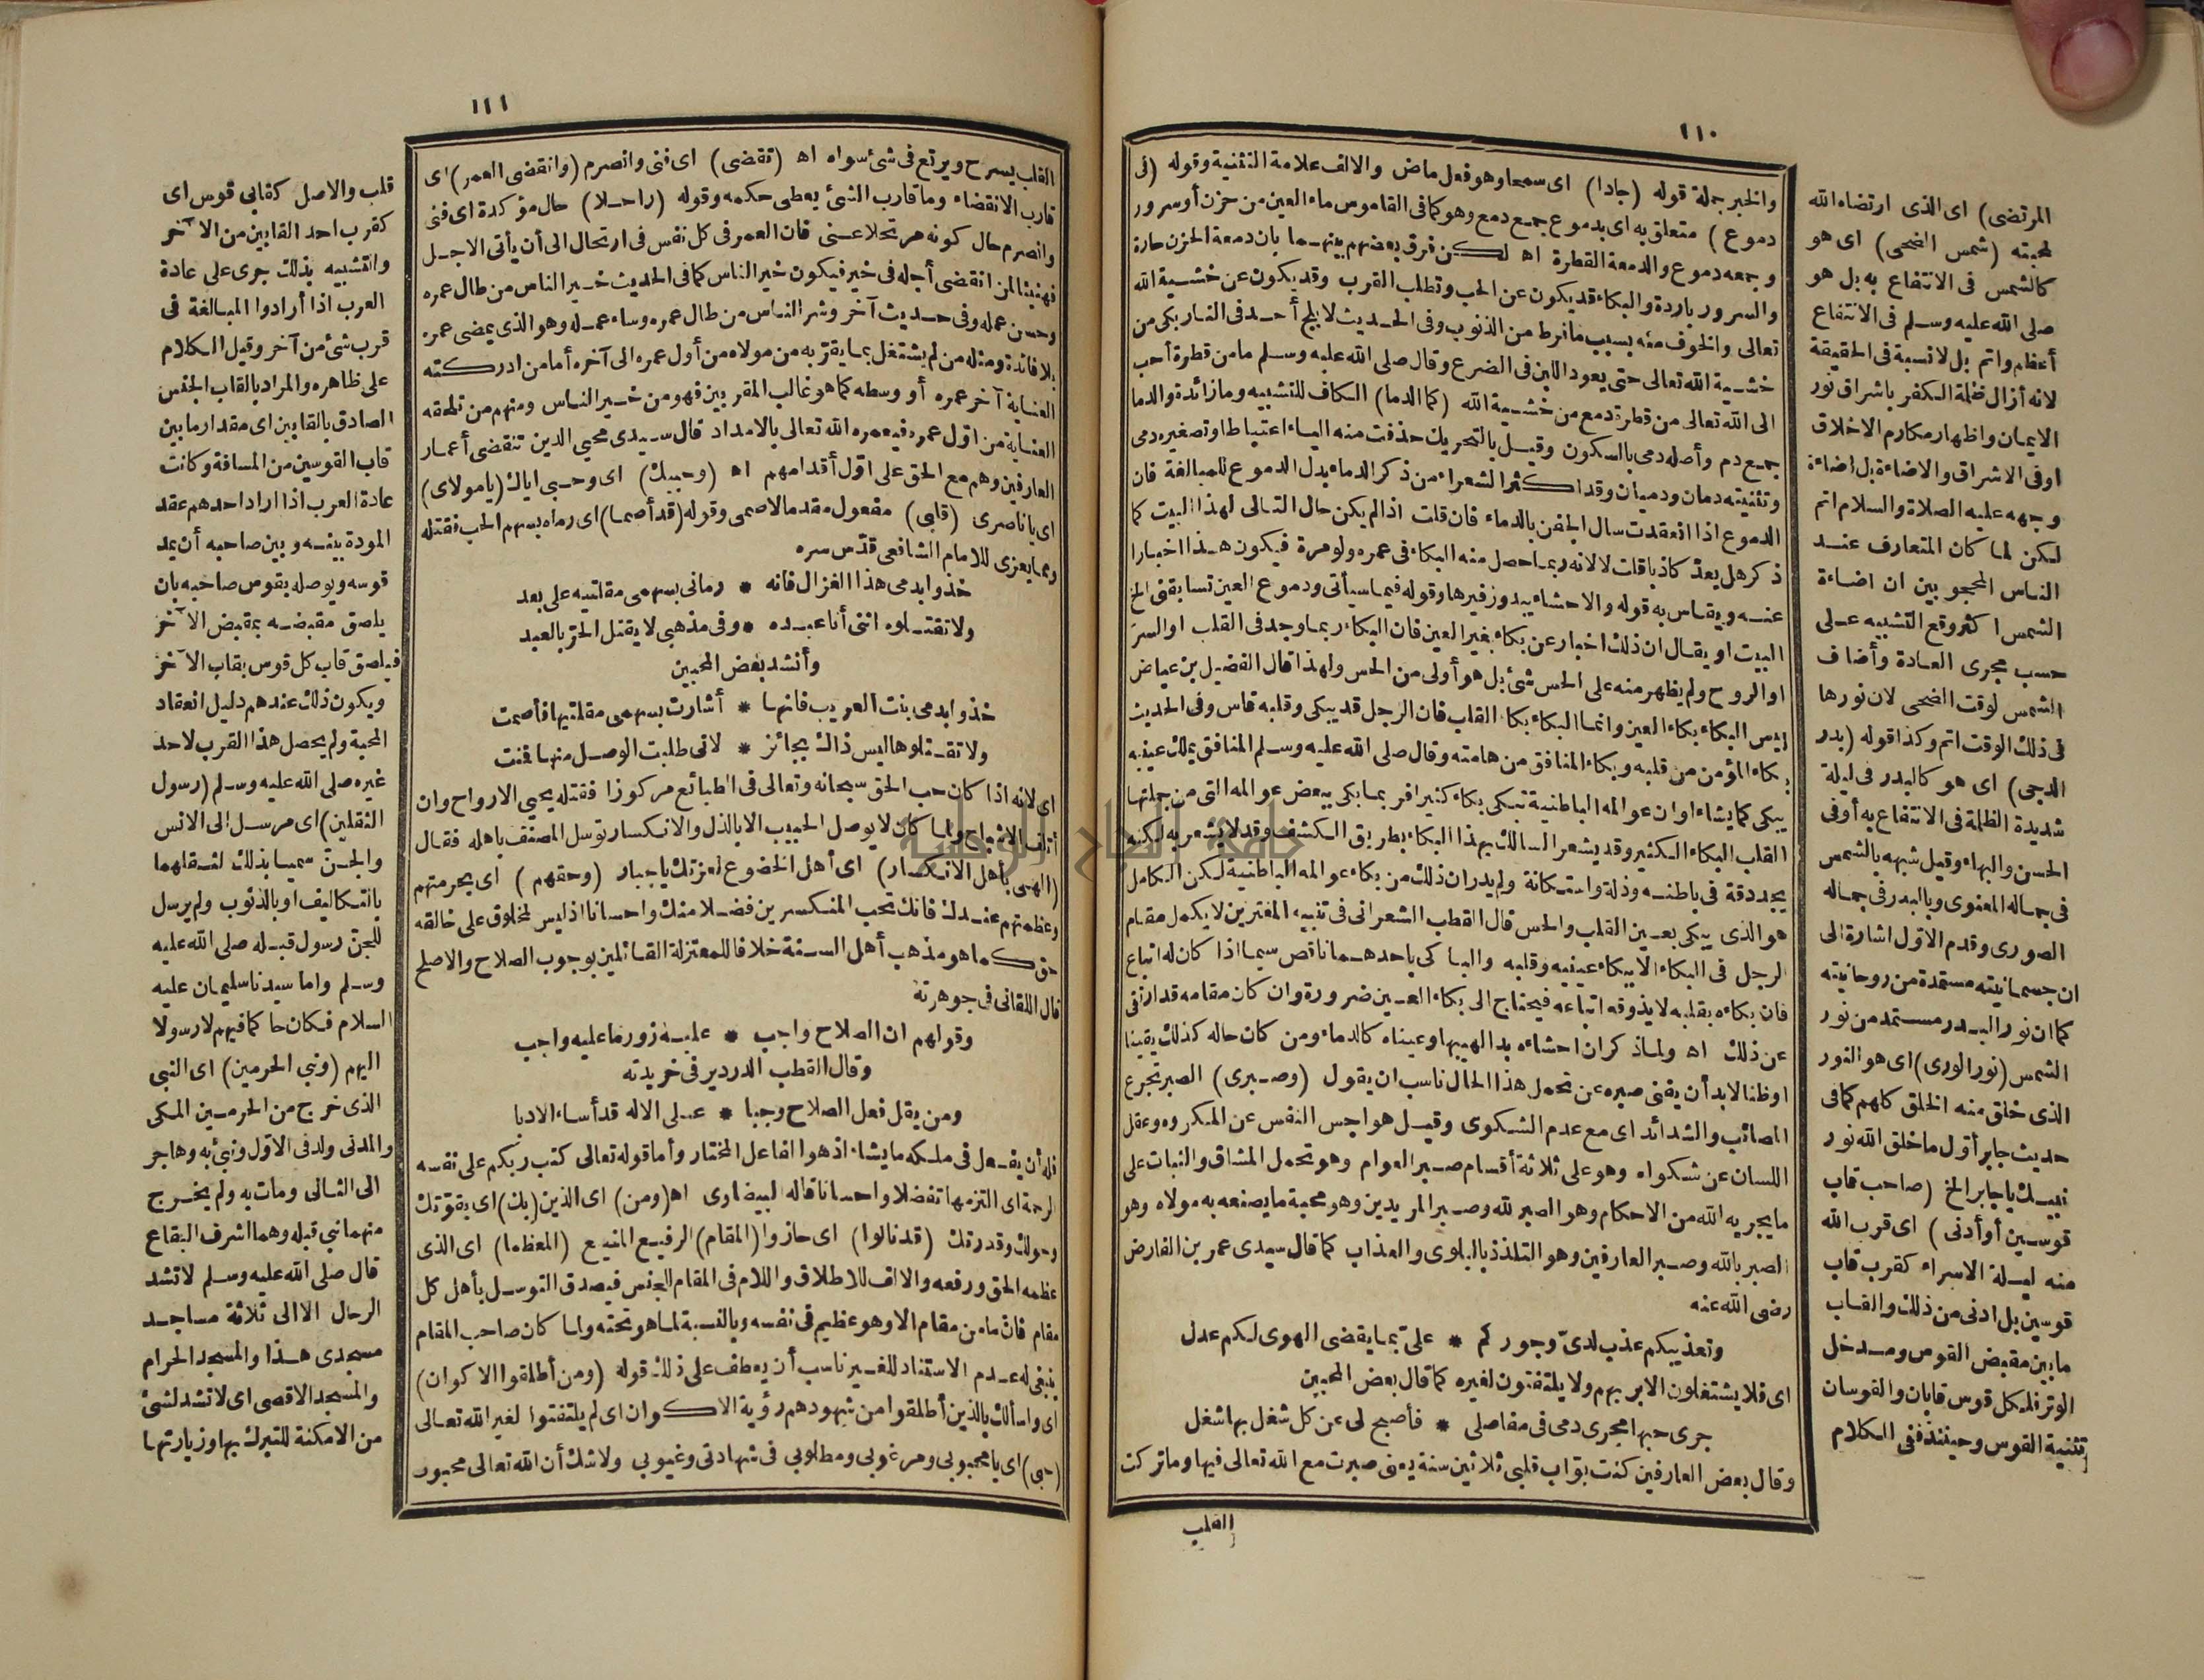 ١١٠
والخبر جملة قوله (جادا) اى سمعا وهو فعل ماض والالف علامة التثنية وقوله (فى
دموع) متعلق به اى بدموع جمع دمع وهو كما فى القاموس ماء العين من حزن أو سرور
وجمعه دموع والدمعة القطرة اه لكن فرق بعضهم بينهما بان دمعة الحزن حارة
والسرور باردة والبكاء قد يكون عن الحب وتطلب القرب وقد يكون عن خشية الله
تعالى والخوف منه بسبب ما فرط من الذنوب وفى الحديث لا يلج أحد فى النار بكى من
خشية الله تعالى حتى يعود اللبن فى الضرع وقال صلى الله عليه وسلم ما من قطرة أحب
الى الله تعالى من قطرة دمع من خشية الله (كما الدما) الكاف للتشبيه وما زائدة والدما
جمع دم وأصله دمى بالسكون وقيل بالتحريك حذفت منه الياء اعتباطا وتصغيره دمى
وتثنيته دمان ودميان وقد اكثر الشعراء من ذكر الدماء بدل الدموع للمبالغة فان
الدموع اذا انعقدت سال الجفن بالدماء فان قلت اذا لم يكن حال التالى لهذا البيت كما
ذكر هل يعد كاذبا قلت لا لانه ربما حصل منه البكاء فى عمره ولو مرة فيكون هذا اخبارا
عنه ويقاس به قوله والاحشاء يبدو زفيرها وقوله فيما سيأتى ودموع العين تسابقنى الخ
البيت او يقال ان ذلك اخبار عن بكاء بغير العين فان البكاء ربما وجد فى القلب او السر
او الروح ولم يظهر منه على الحس شئ بل هو أولى من الحس ولهذا قال الفضيل بن عياض
ليس البكاء بكاء العين وانما البكاء بكاء القلب فان الرجل قد يبكى وقلبه قاس وفى الحديث
بكاء المؤمن من قلبه وبكاء المنافق من هامته وقال صلى الله عليه وسلم المنافق يملك عينيه
يبكى كما يشاء او ان عوالمه الباطنية تبكى بكاء كثيرا فربما بكى ببعض عوالمه التى من جملتها
القلب البكاء الكثير وقد يشعر السالك بهذا البكاء بطريق الكشف وقد لا يشعر به لكنه
يجد دقة فى باطنه وذلة واستكانة ولم يدر ان ذلك من بكاء عوالمه الباطنية لكن الكامل
هو الذى يبكى بعين القلب والحس قال القطب الشعرانى فى تنبيه المغترين لا يكمل مقام
الرجل فى البكاء الا ببكاء عينيه وقلبه والباكى باحدهما ناقص سيما اذا كان له اتباع
فان بكاءه بقلبه لا يذوقه اتباعه فيحتاج الى بكاء العين ضرورة وان كان مقامه قد ارتقى
عن ذلك اه ولما ذكر ان احشاءه بدا لهيبها وعيناه كالدماء ومن كان حاله كذلك يقينا
او ظنا لابد أن يفنى صبره عن تحمل هذا الحال ناسب ان يقول (وصبرى) الصبر تجرع
المصائب والشدائد اى مع عدم الشكوى وقيل هو احبس النفس عن المكروه وعقل
اللسان عن شكواه وهو على ثلاثة أقسام صبر العوام وهو تحمل المشاق والثبات على
ما يجريه الله من الاحكام وهو الصبر لله وصبر المريدين وهو محبة ما يصنعه به مولاه وهو
الصبر بالله وصبر العارفين وهو التلذذ بالبلوى والعذاب كما قال سيدى عمر بن الفارض
رضى الله عنه
وتعذيبكم عذب لدىّ وجوركم * علىّ بما يقضى الهوى لكم عدل
اى فلا يشتغلون الا بربهم ولا يلتفتون لغيره كما قال بعض المحبين
جرى حبها مجرى دمى فى مفاصلى * فأصبح لى عن كل شغل بها شغل
وقال بعض العارفين كنت بواب قلبى ثلاثين سنة يعنى صبرت مع الله تعالى فيها وما تركت
القلب
المرتضى) اى الذى ارتضاه الله
لمحبته (شمس الضحى) اى هو
كالشمس فى الانتفاع به بل هو
صلى الله عليه وسلم فى الانتفاع
أعظم واتم بل لا نسبة فى الحقيقة
لانه أزال ظلمة الكفر باشراق نور
الايمان واظهار مكارم الاخلاق
او فى الاشراق والاضاءة بل اضاءة
وجهه عليه الصلاة والسلام اتم
لكن لما كان المتعارف عند
الناس المحجوبين ان اضاءة
الشمس اكثر وقع التشبيه على
حسب مجرى العادة وأضاف
الشمس لوقت الضحى لان نورها
فى ذلك الوقت اتم وكذا قوله (بدر
الدجى) اى هو كالبدر فى ليلة
شديدة الظلمة فى الانتفاع به أو فى
الحسن والبهاء وقيل شبهه بالشمس
فى جماله المعنوى وبالبدر فى جماله
الصورى وقدم الاول اشارة الى
ان جسمانيته مستمدة من روحانيته
كما ان نور البدر مستمد من نور
الشمس (نور الورى) اى هو النور
الذى خلق منه الخلق كلهم كما فى
حديث جابر أول ما خلق الله نور
نبيك يا جابر الخ (صاحب قاب
قوسين أو أدنى) اى قرب الله
منه ليلة الاسراء كقرب قاب
قوسين بل ادنى من ذلك والقاب
ما بين مقبض القوس ومدخل
الوتر فلكل قوس قابان والقوسان
تثنية القوس وحينئذ ففى الكلام
١١١
القلب يسرح ويرتع فى شئ سواه اه (تقضى) اى فنى وانصرم (وانقضى العمر) اى
قارب الانقضاء وما قارب الشئ يعطى حكمه وقوله (راحلا) حال مؤكدة اى فنى
وانصرم حال كونه مرتحلا عنى فان العمر فى كل نفس فى ارتحال الى أن يأتى الاجل
فهنيئا لمن انقضى أجله فى خير فيكون خير الناس كما فى الحديث خير الناس من طال عمره
وحسن عمله وفى حديث آخر وشر الناس من طال عمره وساء عمله وهو الذى يمضى عمره
بلا فائدة ومثله من لم يشتغل بما يقربه من مولاه من أول عمره الى آخره أما من ادركته
العناية آخر عمره أو وسطه كما هو غالب المقربين فهو من خير الناس ومنهم من تلحقه
العناية من اول عمره فيعمره الله تعالى بالامداد قال سيدى محيي الدين تنقضى أعمار
العارفين وهم مع الحق على اول أقدامهم اه (وحبيك) اى وحبى اياك (يا مولاى)
اى يا ناصرى (قلبى) مفعول مقدم لاصمى وقوله (قد أصما) اى رماه بسهم الحب فقتله
ومما يعزى للامام الشافعى قدّس سره
خذوا بدمى هذا الغزال فانه * رمانى بسهمى مقلتيه على بعد
ولا تقتلوه اننى أنا عبده * وفى مذهبى لا يقتل الحرّ بالعبد
وأنشد بعض المحبين
خذوا بدمى بنت العريب فانها * أشارت بسهمى مقلتيها فأصمت
ولا تقتلوها ليس ذاك بجائز * لانى طلبت الوصل منها فمنت
اى لانه اذا كان حب الحق سبحانه وتعالى فى الطبائع مركوزا فقتله يحيي الارواح وان
أتلف الاشباح ولما كان لا يوصل الحبيب الا بالذل والانكسار توسل المصنف باهله فقال
(الهى بأهل الانكسار) اى أهل الخضوع لعزتك يا جبار (وحقهم) اى بحرمتهم
وعظمتهم عندك فانك تحب المنكسرين فضلا منك واحسانا اذ ليس لمخلوق على خالقه
حق كما هو مذهب أهل السنة خلافا للمعتزلة القائلين بوجوب الصلاح والاصلح
قال اللقانى فى جوهرته
وقولهم ان الصلاح واجب * عليه زور ما عليه واجب
وقال القطب الدردير فى خريدته
ومن يقل فعل الصلاح وجبا * على الاله قد أساء الادبا
فله أن يفعل فى ملكه ما يشاء اذ هو الفاعل المختار وأما قوله تعالى كتب ربكم على نفسه
الرحمة اى التزمها تفضلا واحسانا قاله البيضاوى اه (ومن) اى الذين (بك) اى بقوتك
وحولك وقدرتك (قد نالوا) اى حازوا (المقام) الرفيع المنيع (المعظما) اى الذى
عظمه الحق ورفعه والالف للاطلاق واللام فى المقام للجنس فيصدق التوسل بأهل كل
مقام فان ما من مقام الا وهو عظيم فى نفسه وبالنسبة لما هو تحته ولما كان صاحب المقام
ينبغى له عدم الاستناد للغير ناسب أن يعطف على ذلك قوله (ومن أطلقوا الاكوان)
اى واسألك بالذين أطلقوا من شهودهم رؤية الاكوان اى لم يلتفتوا لغير الله تعالى
(حبى) اى يا محبوبى ومرغوبى ومطلوبى فى شهادتى وغيوبى ولا شك أن الله تعالى محبوب
قلب والاصل كقابى قوس اى
كقرب احد القابين من الآخر
والتشبيه بذلك جرى على عادة
العرب اذا أرادوا المبالغة فى
قرب شئ من آخر وقيل الكلام
على ظاهره والمراد بالقاب الجنس
الصادق بالقابين اى مقدار ما بين
قاب القوسين من المسافة وكانت
عادة العرب اذا اراد احدهم عقد
المودة بينه وبين صاحبه أن يمد
قوسه ويوصله بقوس صاحبه بان
يلصق مقبضه بمقبض الآخر
فيلصق قاب كل قوس بقاب الآخر
ويكون ذلك عندهم دليل انعقاد
المحبة ولم يحصل هذا القرب لاحد
غيره صلى الله عليه وسلم (رسول
الثقلين) اى مرسل الى الانس
والجن سميا بذلك لثقلهما
بالتكاليف او بالذنوب ولم يرسل
للجن رسول قبله صلى الله عليه
وسلم واما سيدنا سليمان عليه
السلام فكان حاكما فيهم لا رسولا
اليهم (ونبي الحرمين) اى النبى
الذى خرج من الحرمين المكى
والمدنى ولد فى الاول ونبئ به وهاجر
الى الثانى ومات به ولم يخرج
منهما نبى قبله وهما اشرف البقاع
قال صلى الله عليه وسلم لا تشد
الرحال الا الى ثلاثة مساجد
مسجدى هذا والمسجد الحرام
والمسجد الاقصى اى لا تشد لشئ
من الامكنة للتبرك بها وزيارتها
جامعة النجاح الوطنية